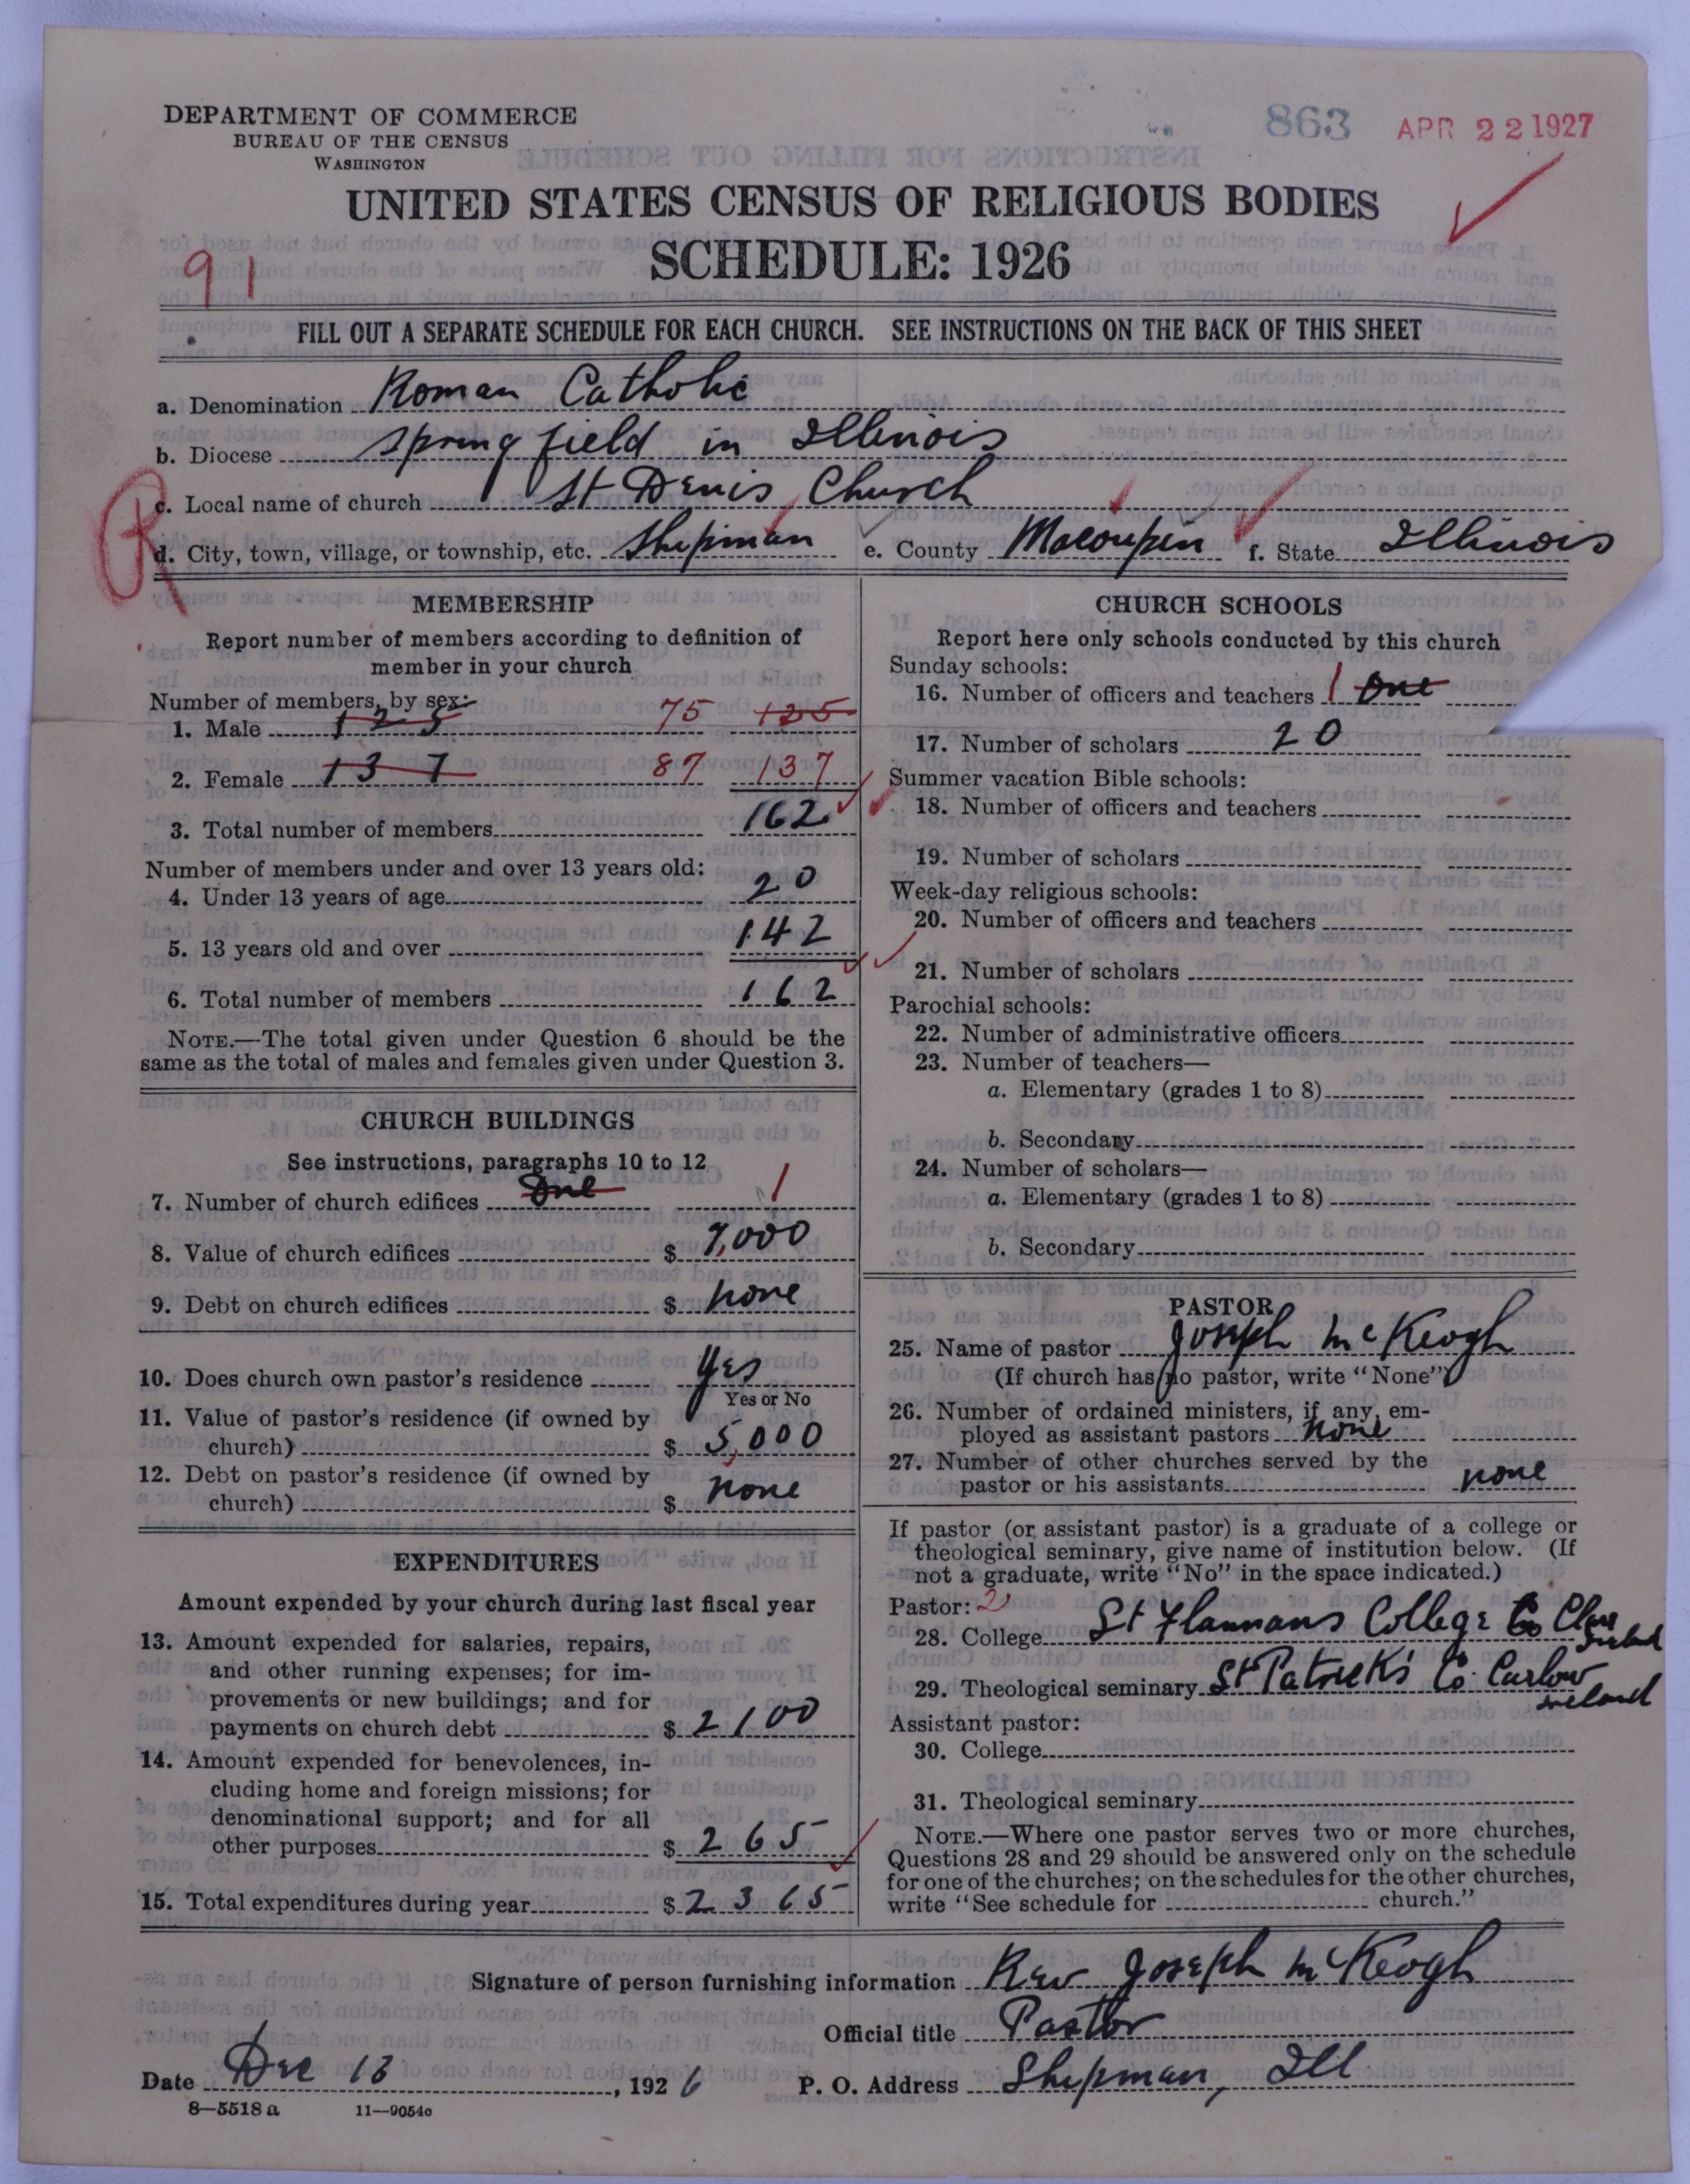 DEPARTMENT OF COMMERCE
BUREAU OF THE CENSUS
WASHINGTON
863 APR 22 1927
UNITED STATES CENSUS OF RELIGIOUS BODIES
SCHEDULE: 1926
91
FILL OUT A SEPARATE SCHEDULE FOR EACH CHURCH. SEE INSTRUCTIONS ON THE BACK OF THIS SHEET
a. Denomination Roman Catholic
b. Diocese Springfield in Illinois
R
c. Local name of church St Denis Church
d. City, town, village, or township, etc. Shipman e. County Macoupin f. State Illinois
MEMBERSHIP
Report number of members according to definition of
member in your church
Number of members, by sex:
1. Male 125 75 135
2. Female 137 87 137
3. Total number of members 162
Number of members under and over 13 years old:
4. Under 13 years of age 20
5. 13 years old and over 142
6. Total number of members 162
NOTE.—The total given under Question 6 should be the
same as the total of males and females given under Question 3.
CHURCH BUILDINGS
See instructions, paragraphs 10 to 12
7. Number of church edifices One 1
8. Value of church edifices $ 7,000
9. Debt on church edifices $ none
10. Does church own pastor's residence Yes
Yes or No
11. Value of pastor's residence (if owned by
church) $ 5,000
12. Debt on pastor's residence (if owned by
church) $ none
EXPENDITURES
Amount expended by your church during last fiscal year
13. Amount expended for salaries, repairs,
and other running expenses; for im-
provements or new buildings; and for
payments on church debt $ 2100
14. Amount expended for benevolences, in-
cluding home and foreign missions; for
denominational support; and for all
other purposes $ 265
15. Total expenditures during year $ 2365
CHURCH SCHOOLS
Report here only schools conducted by this church
Sunday schools:
16. Number of officers and teachers 1 One
17. Number of scholars 20
Summer vacation Bible schools:
18. Number of officers and teachers
19. Number of scholars
Week-day religious schools:
20. Number of officers and teachers
21. Number of scholars
Parochial schools:
22. Number of administrative officers
23. Number of teachers—
a. Elementary (grades 1 to 8)
b. Secondary
24. Number of scholars—
a. Elementary (grades 1 to 8)
b. Secondary
PASTOR
25. Name of pastor Joseph McKeogh
(If church has no pastor, write "None")
26. Number of ordained ministers, if any, em-
ployed as assistant pastors none
27. Number of other churches served by the
pastor or his assistants none
If pastor (or assistant pastor) is a graduate of a college or
theological seminary, give name of institution below. (If
not a graduate, write "No" in the space indicated.)
Pastor: 2
28. College St Flannans College Co Clare
Ireland
29. Theological seminary St Patrick's Co. Carlow
Ireland
Assistant pastor:
30. College
31. Theological seminary
NOTE.—Where one pastor serves two or more churches,
Questions 28 and 29 should be answered only on the schedule
for one of the churches; on the schedules for the other churches,
write "See schedule for church."
Signature of person furnishing information Rev Joseph McKeogh
Official title Pastor
Date Dec 13, 1926 P. O. Address Shipman, Ill
8—5518 a 11—9054c